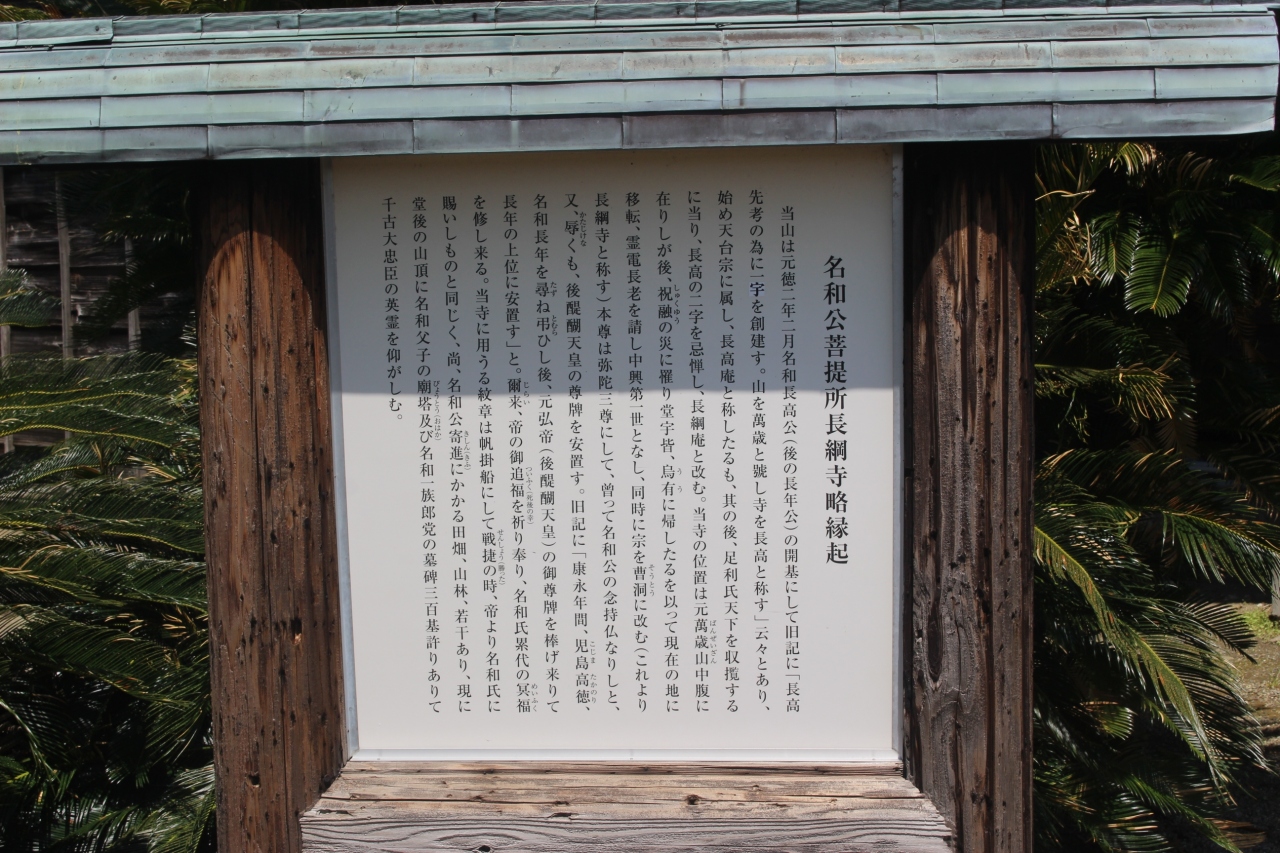 名和公菩提所長綱寺略縁起
当山は元徳二年二月名和長高公(後の長年公)の開基にして旧記に「長高
先考の為に一宇を創建す。山を萬歳と號し寺を長高と称す」云々とあり、
始め天台宗に属し、長高庵と称したるも、其の後、足利氏天下を収攬する
に当り、長高の二字を忌憚し、長綱庵と改む。当寺の位置は元萬歳山中腹に
在りしが後、祝融の災に罹り堂宇皆、烏有に帰したるを以つて現在の地に
移転、霊電長老を請し中興第一世となし、同時に宗を曹洞に改む(これより
長綱寺と称す)本尊は弥陀三尊にして、曾って名和公の念持仏なりしと、
又、辱くも、後醍醐天皇の尊牌を安置す。旧記に「康永年間、児島高徳、
名和長年を尋ね弔ひし後、元弘帝(後醍醐天皇)の御尊牌を棒げ来りて
長年の上位に安置す」と。爾来、帝の御追福を祈り奉り、名和氏累代の冥福
を修し来る。当寺に用うる紋章は帆掛船にして戦捷の時、帝より名和氏に
賜いしものと同じく、尚、名和公寄進にかかる田畑、山林、若干あり、現に
堂後の山頂に名和父子の廟塔及び名和一族郎党の墓碑三百基許りありて
千古大忠臣の英霊を仰がしむ。